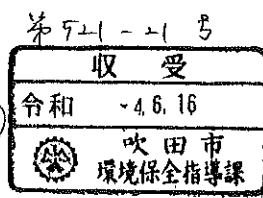 第521-21号
収受
令和 -4.6.16
吹田市
環境保全指導課